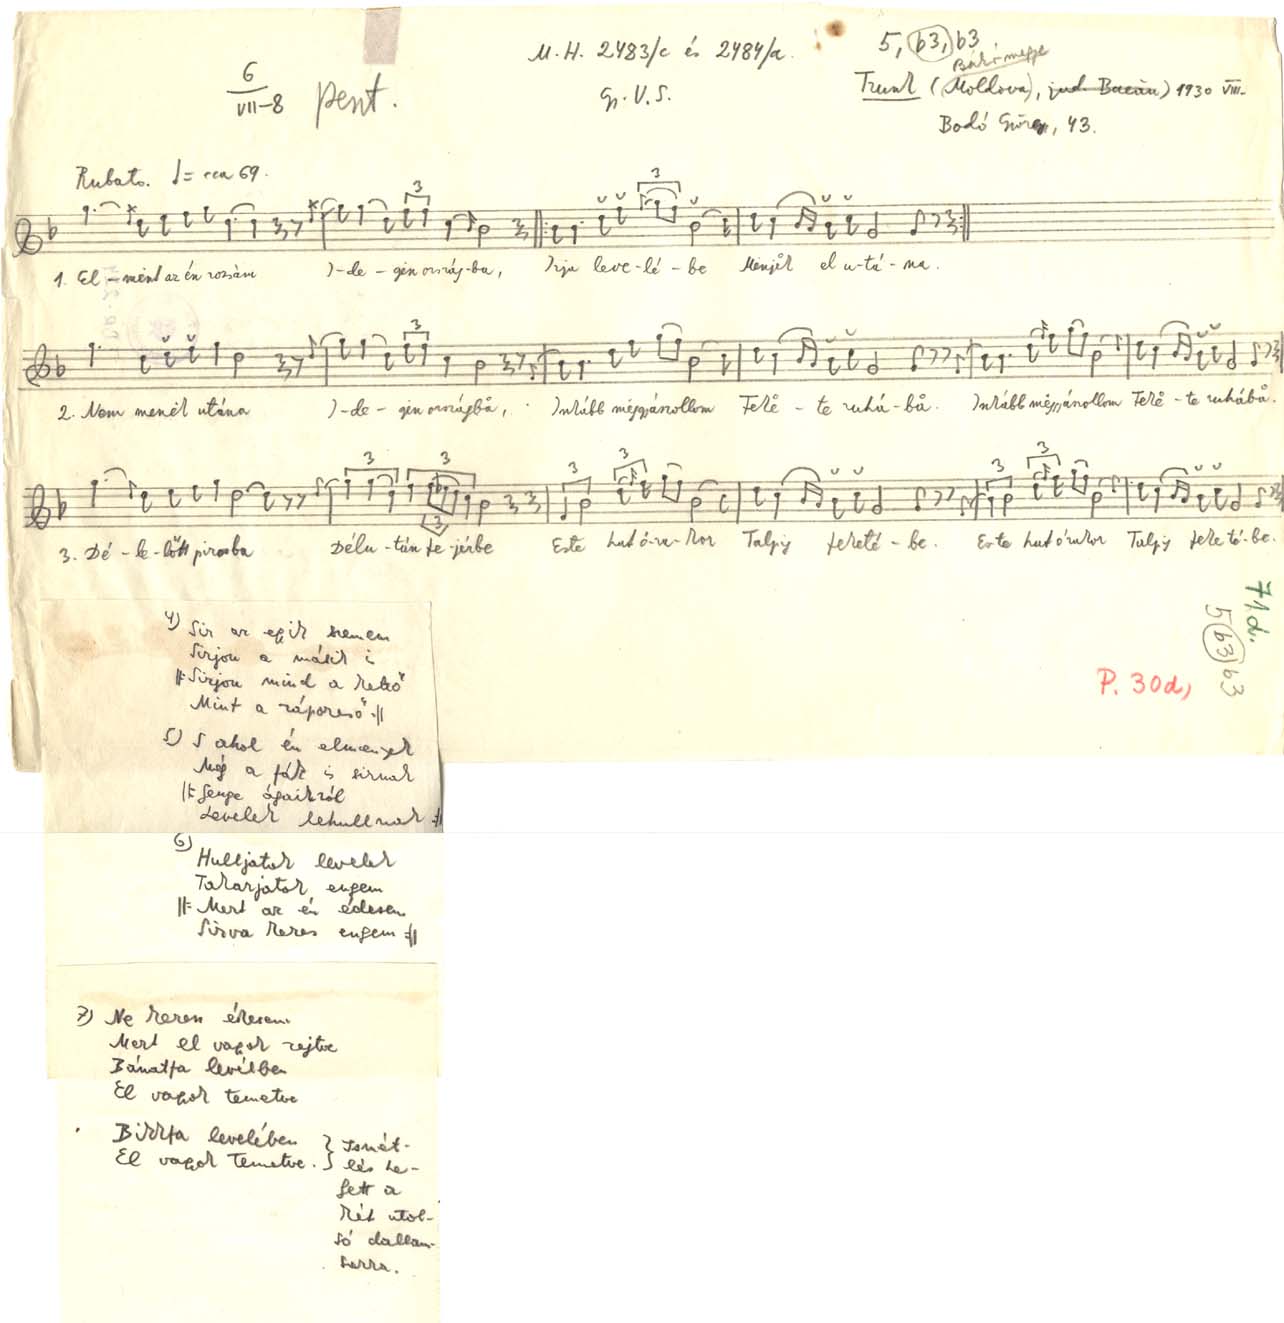 M. H. 2483/c és 2484/a.
Gy. V. S.
5, b3, b3
Trunk (Moldova), jud. Bacău) 1930 VIII.
Bodó György, 43.
6
VII–8
pent.
Rubato. ♩= cca 69.
3
3
1. El - ment az én rozsám I-de - gen ország-ba, Irja leve-lé - be Menjek el u-tá - na.
3
2. Nem menék utána I-de - gen országbå, Inkább meggyászollom Feke - te ruhá - bå. Inkább meggyászollom Feke - te ruhábå.
3
3
3
3
3
3
3
3. Dé - le - lőtt pirosba Délu - tán fe-jérbe Este hat ó-ra-kor Talpig feketé - be. Este hat órakor Talpig fekete-be.
4) Sir az egik szemem
Sirjon a másik is
‖: Sirjon mind a kettő
Mint a záporeső :‖
5) S ahol én elmenyek
Még a fák is sirnak
‖: Genge ágaikról
Levelek lehullnak :‖
6) Hulljatok levelek
Takarjatok engem
‖: Mert az én édesem
Sirva keres engem :‖
7) Ne keress édesem
Mert el vagyok rejtve
Bánatfa levélben
El vagyok temetve
Bikkfa levelében
El vagyok temetve.
} Ismét-
lés he-
lyett a
két utol-
só dallam-
sorra.
71d.
5 b3 b3
P. 30d,